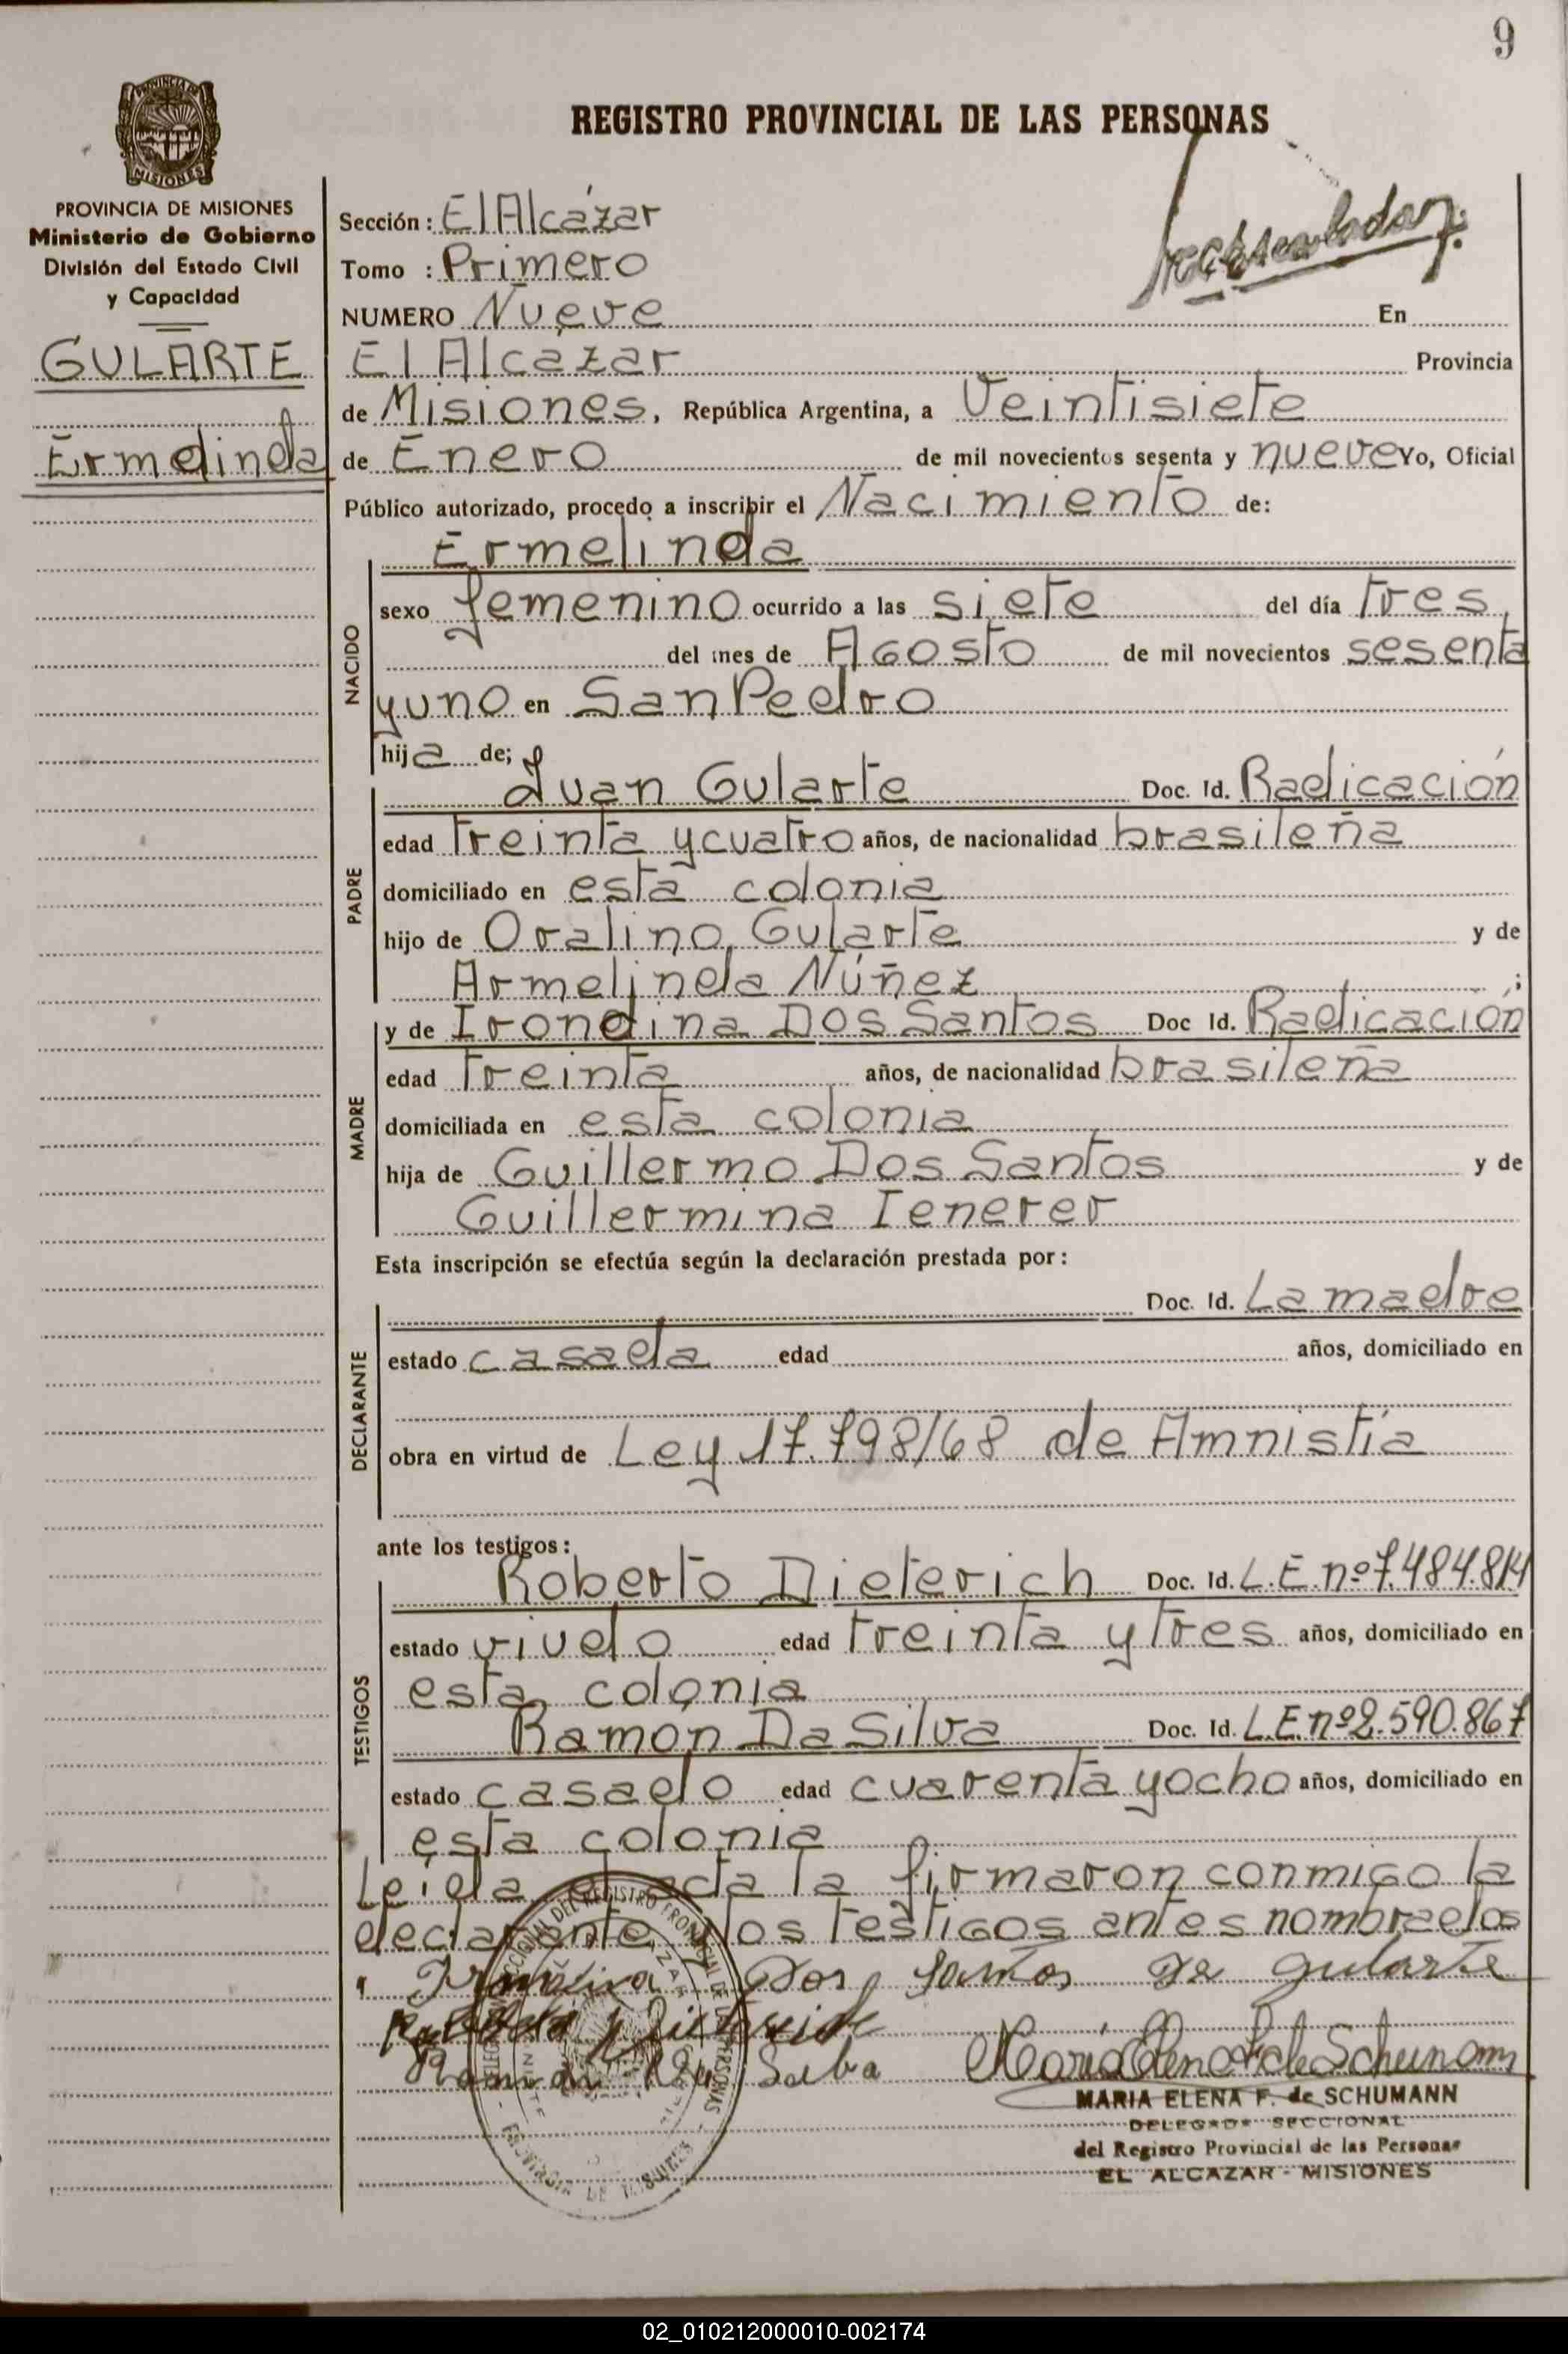 9
REGISTRO PROVINCIAL DE LAS PERSONAS
PROVINCIA DE MISIONES
Ministerio de Gobierno
División del Estado Civil
y Capacidad
GULARTE
Ermelinda
Sección: El Alcázar
Tomo : Primero
NUMERO Nueve En
El Alcázar Provincia
de Misiones, República Argentina, a Veintisiete
de Enero de mil novecientos sesenta y nueve Yo, Oficial
Público autorizado, procedo a inscribir el Nacimiento de:
Ermelinda
NACIDO
sexo femenino ocurrido a las siete del día tres
del mes de Agosto de mil novecientos sesenta
y uno en San Pedro
hija de;
PADRE
Juan Gularte Doc. Id. Radicación
edad treinta y cuatro años, de nacionalidad brasileña
domiciliado en esta colonia
hijo de Oralino Gularte y de
Armelinda Núñez ;
MADRE
y de Irondina Dos Santos Doc Id. Radicación
edad treinta años, de nacionalidad brasileña
domiciliada en esta colonia
hija de Guillermo Dos Santos y de
Guillermina Ienerer
Esta inscripción se efectúa según la declaración prestada por:
DECLARANTE
Doc. Id. La madre
estado casada edad años, domiciliado en
obra en virtud de Ley 17.798/68 de Amnistía
ante los testigos:
TESTIGOS
Roberto Dieterich Doc. Id. L.E. nº 7.484.814
estado viudo edad treinta y tres años, domiciliado en
esta colonia
Ramón Da Silva Doc. Id. L.E. nº 2.590.867
estado casado edad cuarenta y ocho años, domiciliado en
esta colonia
Leída el acta la firmaron conmigo la
declarante y los testigos antes nombrados
Dos Santos De Gularte
Ramón Da Silva
Maria Elena F. de Schumann
MARIA ELENA F. de SCHUMANN
DELEGADA SECCIONAL
del Registro Provincial de las Personas
EL ALCAZAR - MISIONES
PROVINCIA DE MISIONES
02_010212000010-002174